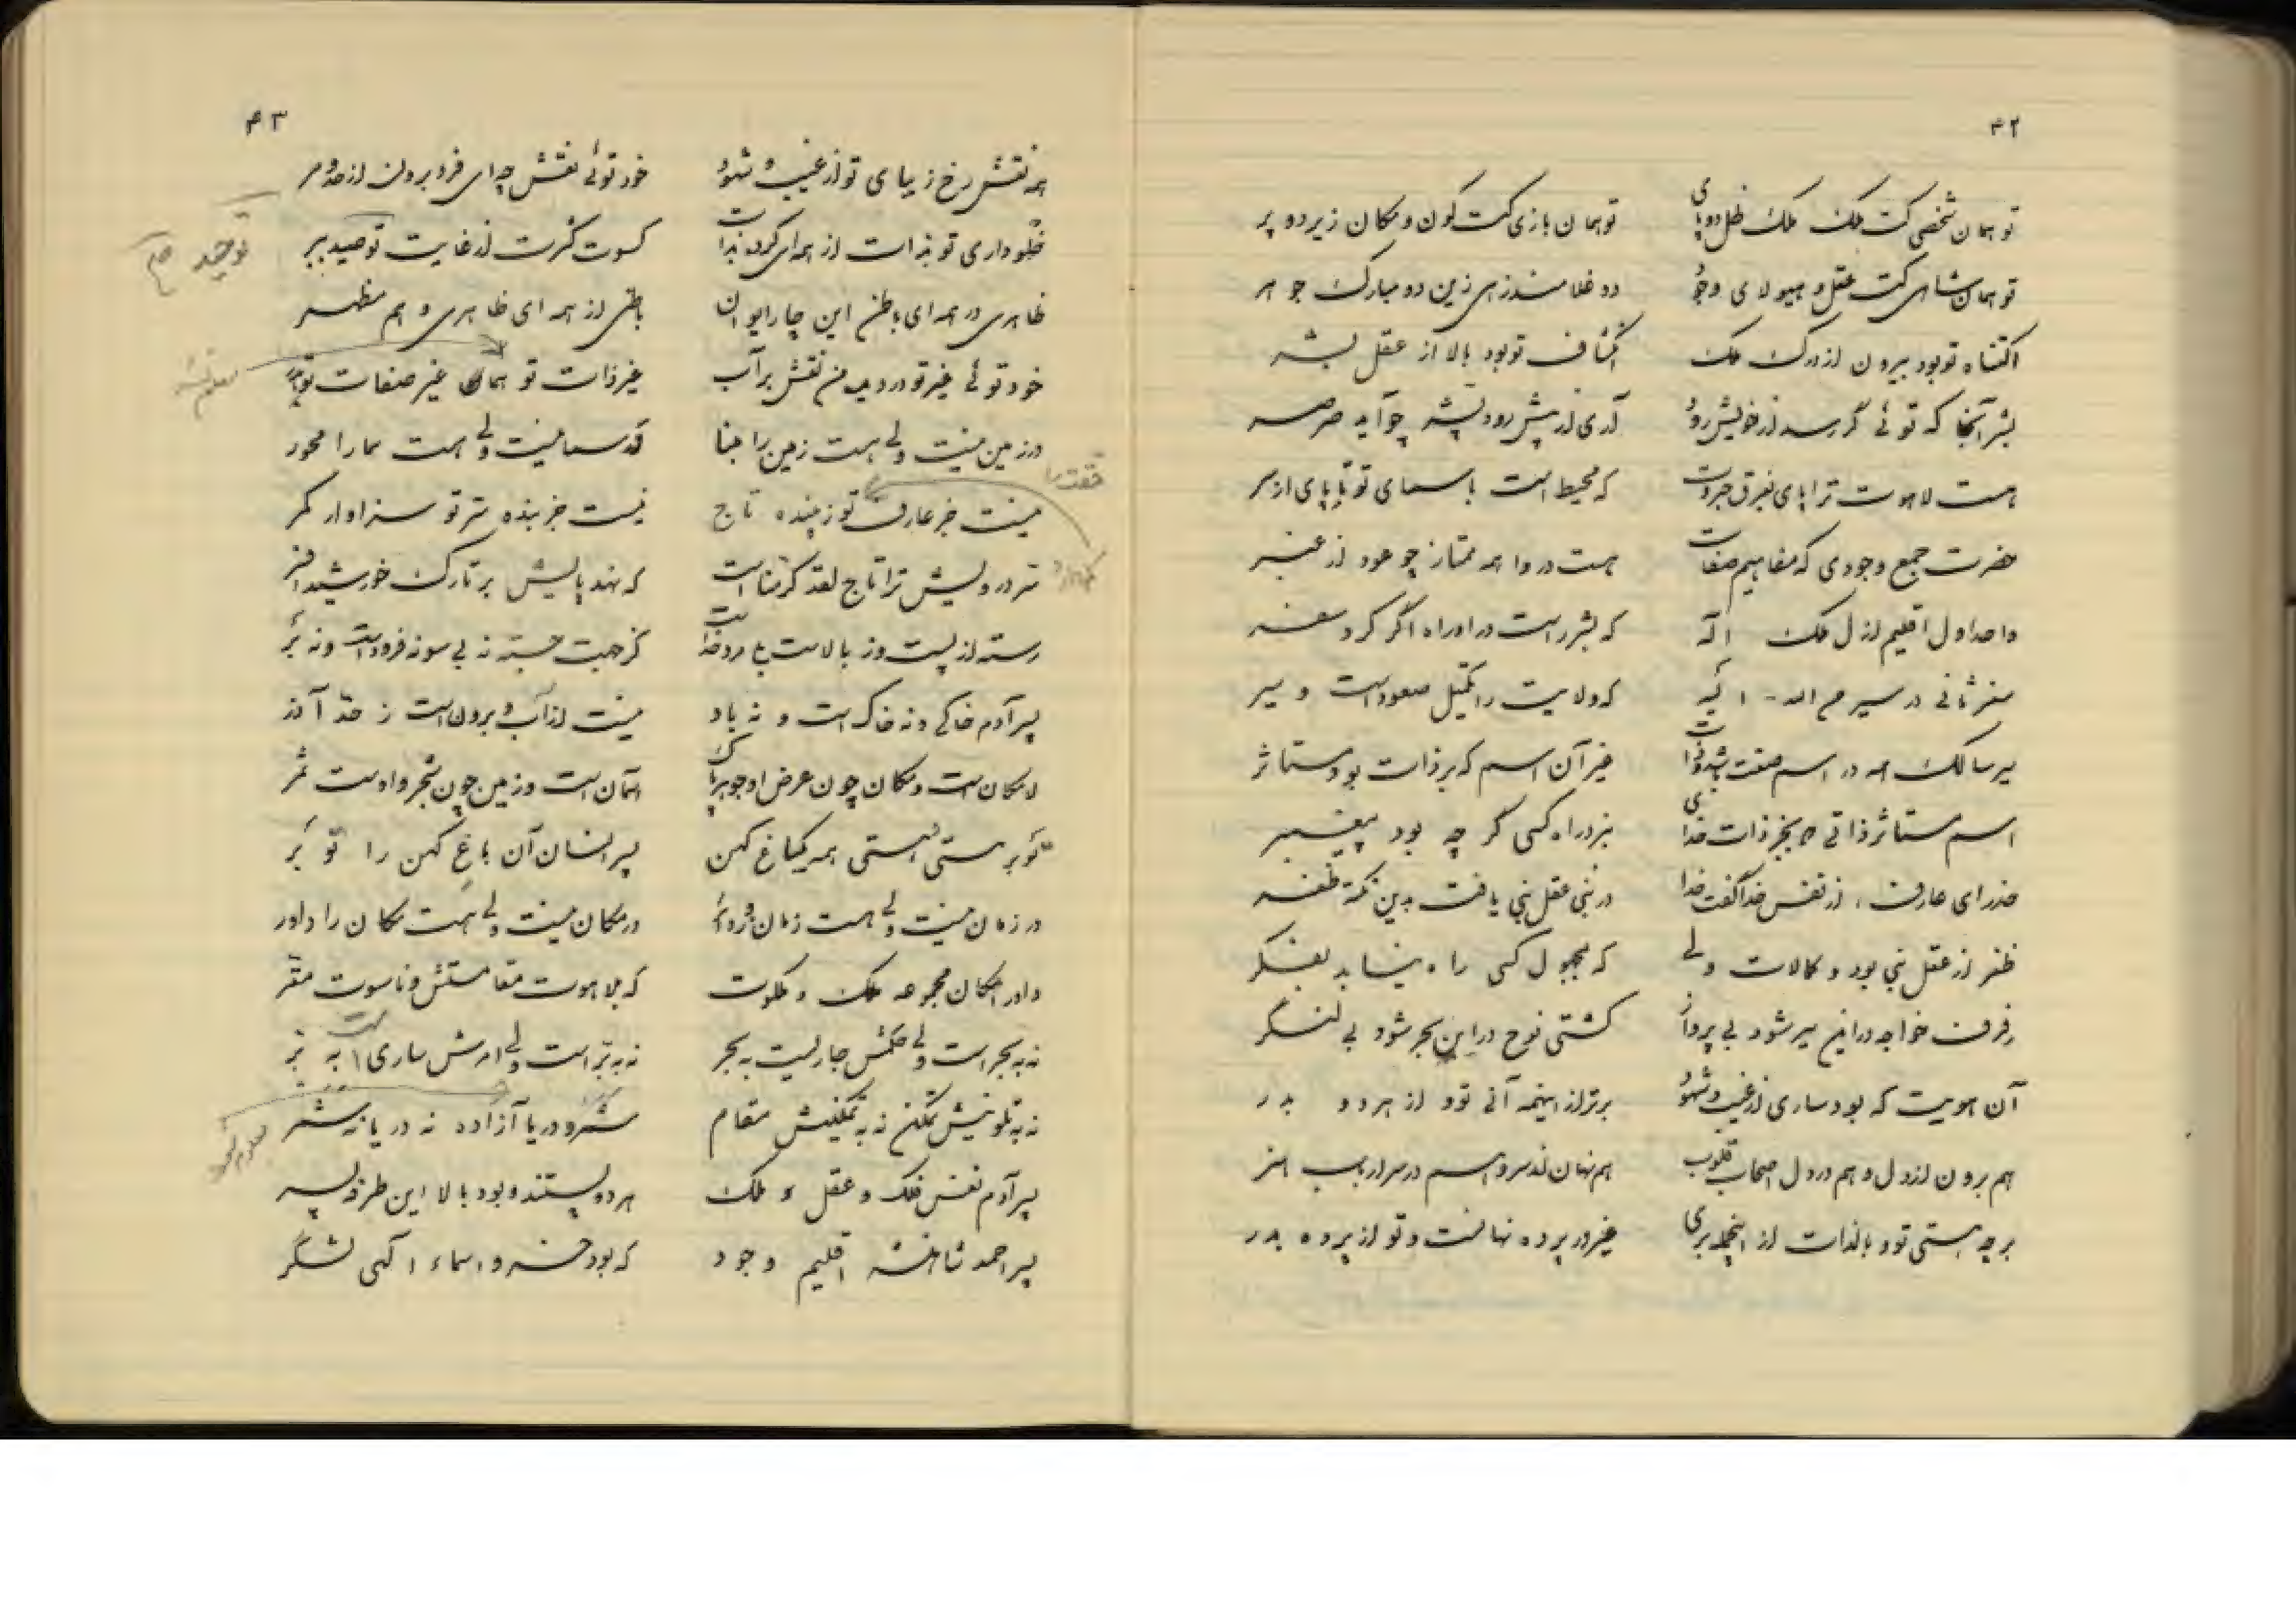 ۴۲
تو همان شخصی کت ملک ملک ظل دو پای تو همان بازی کت کون و مکان زیر دو پر
تو همان شاهی کت عقل و هیولای وجود دو غلامند ازین دو مبارک جوهر
اکتناه تو بود بیرون از درک ملک اکتشاف تو بود بالا از عقل بشر
بشر آنجا که توئی گر رسد از خویش رود آری از پیش رود پشه چو آید صرصر
هست لاهوت ترا پای بفرق جبروت که محیط است باسمای تو پا پای از سر
حضرت جمع وجودی که مفاهیم صفات هست در وا همه ممتاز چو عود از عنبر
واحد اول اقلیم ازل ملک اله که بشر راست در او راه اگر کرد سفر
سفر ثانی در سیر مع الله - اگر که ولایت را تکمیل صعود است و سیر
سیر سالک همه در اسم صفت باشد و ذات غیر آن اسم که بر ذات بود مستاثر
اسم مستاثر ذاتی که بجز ذات خدای نبرد راه کسی گر چه بود پیغمبر
حذر ای عارف، از نفس خدا گفت خدا در نبی عقل نبی یافت بدین نکته ظفر
ظفر از عقل نبی بود و کمالات ولی که مجهول کسی راه نیابد بفکر
رفرف خواجه در این سیر شود بی پرواز کشتی نوح در این بحر شود بی لنگر
آن هویت که بود ساری از غیب و شهود برتر از اینهمه آنی تو و از هر دو بدر
هم برون از دل و هم در دل اصحاب قلوب هم نهان از سر و هم در سر ارباب هنر
هر چه هستی تو و بالذات از اینجمله بری غیر در پرده نهانست و تو از پرده بدر
۴۳
همه نقش رخ زیبای تو از غیب و شهود خود توئی نقش چه ای فرد برون از حد و مر
خلو داری تو بذات از همه ای کرده بذات کسوت کثرت از غایت توحید ببر
توحید
ظاهری در همه ای باطن این چار ایوان باطنی از همه ای ظاهری و هم مظهر
خود توئی غیر تو در دیده من نقش بر آب غیر ذات تو همان غیر صفات تو
در زمین نیست ولی هست زمین را بنا در سما نیست ولی هست سما را محور
نیست جز عارف تو زیبنده تاج نیست جز بنده سر تو سزاوار کمر
سر درویش ترا تاج لقد کرمنا است که نهد پایش بر تارک خورشید افسر
رسته از پست و ز بالاست با مرد خدا کز جهت جسته نه بی سو نه فرودست و نه بر
پسر آدم خاکی و نه خاک است و نه باد نیست از آب و برون است ز حد آذر
لامکان است و مکان چون عرض او جوهر پاک آسمان است و زمین چون شجر و اوست ثمر
تو بر هستی هستی همه یک باغ کهن پسر انسان آن باغ کهن را تو بر
در زمان نیست ولی هست زمان در مکان نیست ولی هست مکان را داور
داور امکان مجموعه ملک و ملکوت که بلاهوت مقامستش و ناسوت مقر
نه به بحر است ولی حکمش جاریست به بحر نه به بر است ولی امرش ساری است به بر
نه به تلوینش تمکن نه به تمکینش مقام شمر و دریا آزاده نه دریا نه شمر
پسر آدم نفس فلک و عقل و ملک هر دو پستند و بود بالا این طرفه پسر
پسر احمد شاهنشه اقلیم وجود که بود خسرو اسماء الهی لشگر